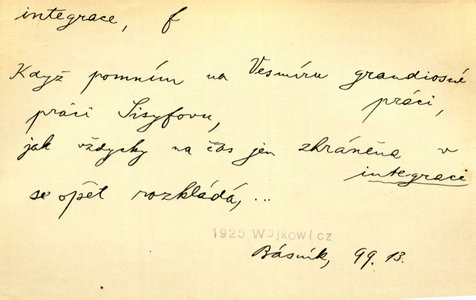 integrace, f
Když pomním na Vesmíru grandiosné
práci,
práci Sisyfovu,
jak vždycky na čas jen zhráněna v
integraci
se opět rozkládá,...
1925 Wojkowicz
Básník, 99. 13.